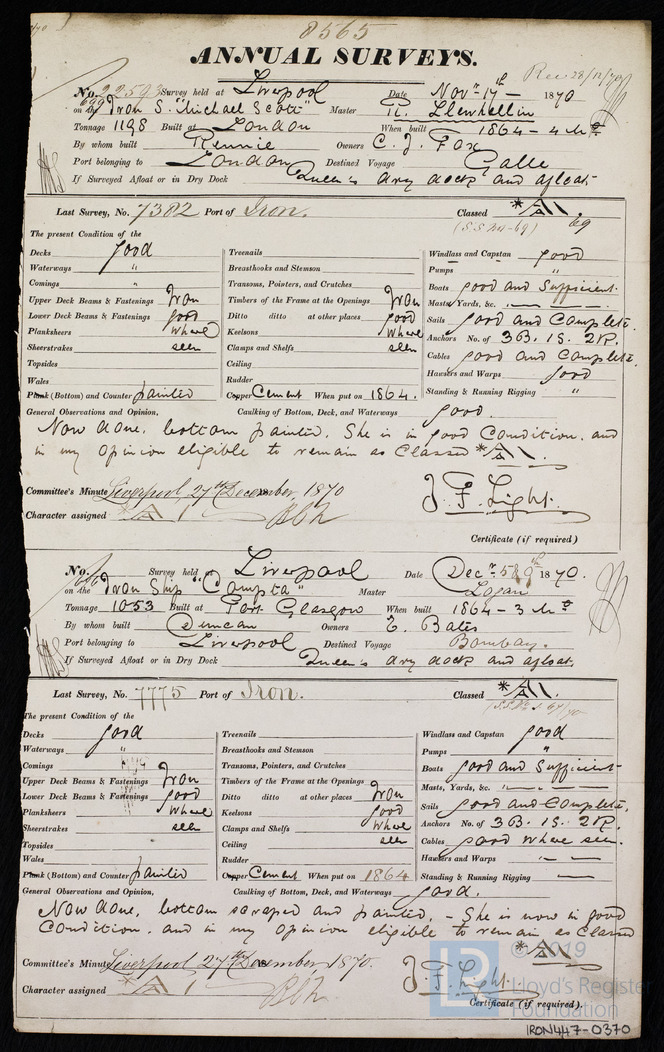 8565
ANNUAL SURVEYS.
Rec 28/12/70
No. 22595 Survey held at Liverpool Date Novr 17th 1870
on the Iron S. "Michael Scott" Master R. Llewhellin
Tonnage 1198 Built at London When built 1864 - 4 Mo
By whom built Rennie Owners C. J. Fox
Port belonging to London Destined Voyage Galle
If Surveyed Afloat or in Dry Dock Queen's dry dock and afloat.
Last Survey, No. 7382 Port of Iron. Classed *A1. 69
The present Condition of the
Decks good Treenails Windlass and Capstan good
Waterways " Breasthooks and Stemson Pumps "
Comings " Transoms, Pointers, and Crutches Boats good and Sufficient
Upper Deck Beams & Fastenings Iron Timbers of the Frame at the Openings Iron Masts, Yards, &c.
Lower Deck Beams & Fastenings good Ditto ditto at other places good Sails good and Complete.
Planksheers where Keelsons where Anchors No. of 3B. 1S. 2K.
Sheerstrakes seen Clamps and Shelfs seen Cables good and Complete.
Topsides Ceiling Hawsers and Warps good
Wales Rudder Standing & Running Rigging "
Plank (Bottom) and Counter painted Copper Cement When put on 1864.
General Observations and Opinion, Caulking of Bottom, Deck, and Waterways good.
Now done, bottom painted. She is in good Condition, and
in my Opinion eligible to remain as Classed *A1.
Committee's Minute Liverpool, 27th December, 1870 J. F. Light.
Character assigned *A1
Certificate (if required)
No. 696 Survey held at Liverpool Date Decr 5 & 9th 1870.
on the Iron Ship "Compta" Master Logan
Tonnage 1053 Built at Port Glasgow When built 1864 - 3 Mo
By whom built Duncan Owners E. Bates
Port belonging to Liverpool Destined Voyage Bombay.
If Surveyed Afloat or in Dry Dock Queen's dry dock and afloat.
Last Survey, No. 7775 Port of Iron. Classed *A1.
The present Condition of the
Decks good Treenails Windlass and Capstan good
Waterways " Breasthooks and Stemson Pumps "
Comings Transoms, Pointers, and Crutches Boats good and Sufficient
Upper Deck Beams & Fastenings Iron Timbers of the Frame at the Openings Masts, Yards, &c.
Lower Deck Beams & Fastenings good Ditto ditto at other places Iron Sails good and Complete.
Planksheers where Keelsons good Anchors No. of 3B. 1S. 2K.
Sheerstrakes seen Clamps and Shelfs where Cables good where seen.
Topsides Ceiling seen Hawsers and Warps
Wales Rudder Standing & Running Rigging
Plank (Bottom) and Counter painted Copper Cement When put on 1864
General Observations and Opinion, Caulking of Bottom, Deck, and Waterways good.
Now done, bottom scraped and painted. - She is now in good
Condition, and in my opinion eligible to remain as Classed
*A1.
Committee's Minute Liverpool 27th December 1870. J. F. Light.
Character assigned *A1
Certificate (if required).
© 2019
Lloyd's Register
Foundation
IRON447-0370